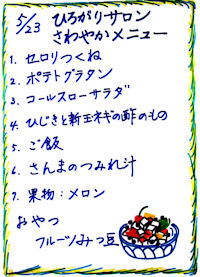 5/23 ひろがりサロン
さわやかメニュー
1. セロリつくね
2. ポテトグラタン
3. コールスローサラダ
4. ひじきと新玉ネギの酢のもの
5. ご飯
6. さんまのつみれ汁
7. 果物：メロン
おやつ
フルーツみつ豆